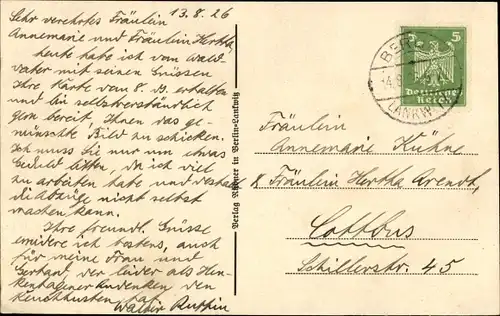 Sehr verehrtes Fräulein 13.8.26
Annemarie und Fräulein Hertha,
heute habe ich von Wald-
vater mit seinen Grüssen
Ihre Karte vom 8. erhalten
und bin selbstverständlich
gern bereit, Ihnen das ge-
wünschte Bild zu schicken.
Ich muss Sie nur um etwas
Geduld bitten, da ich viel
zu arbeiten habe und deshalb
die Abzüge nicht selbst
machen kann.
Ihre freundl. Grüsse
erwidere ich bestens, auch
für meine Frau und
Gerhart, der leider als
Andenken den
Keuchhusten hat.
Walter
Verlag in Berlin-Lankwitz
5 5
Deutsches
Reich
BERLIN
LANKW
Fräulein
Annemarie Kühne
& Fräulein Hertha Arendt,
Cottbus
Schillerstr. 45